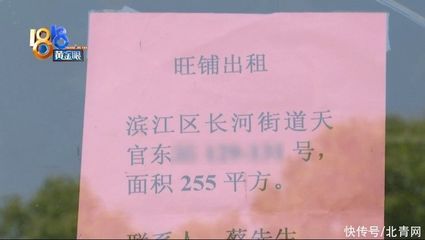 1818
黄金眼
旺铺出租
滨江区长河街道天
官东 号，
面积 255 平方。
联系人 蔡先生
快传号/北青网